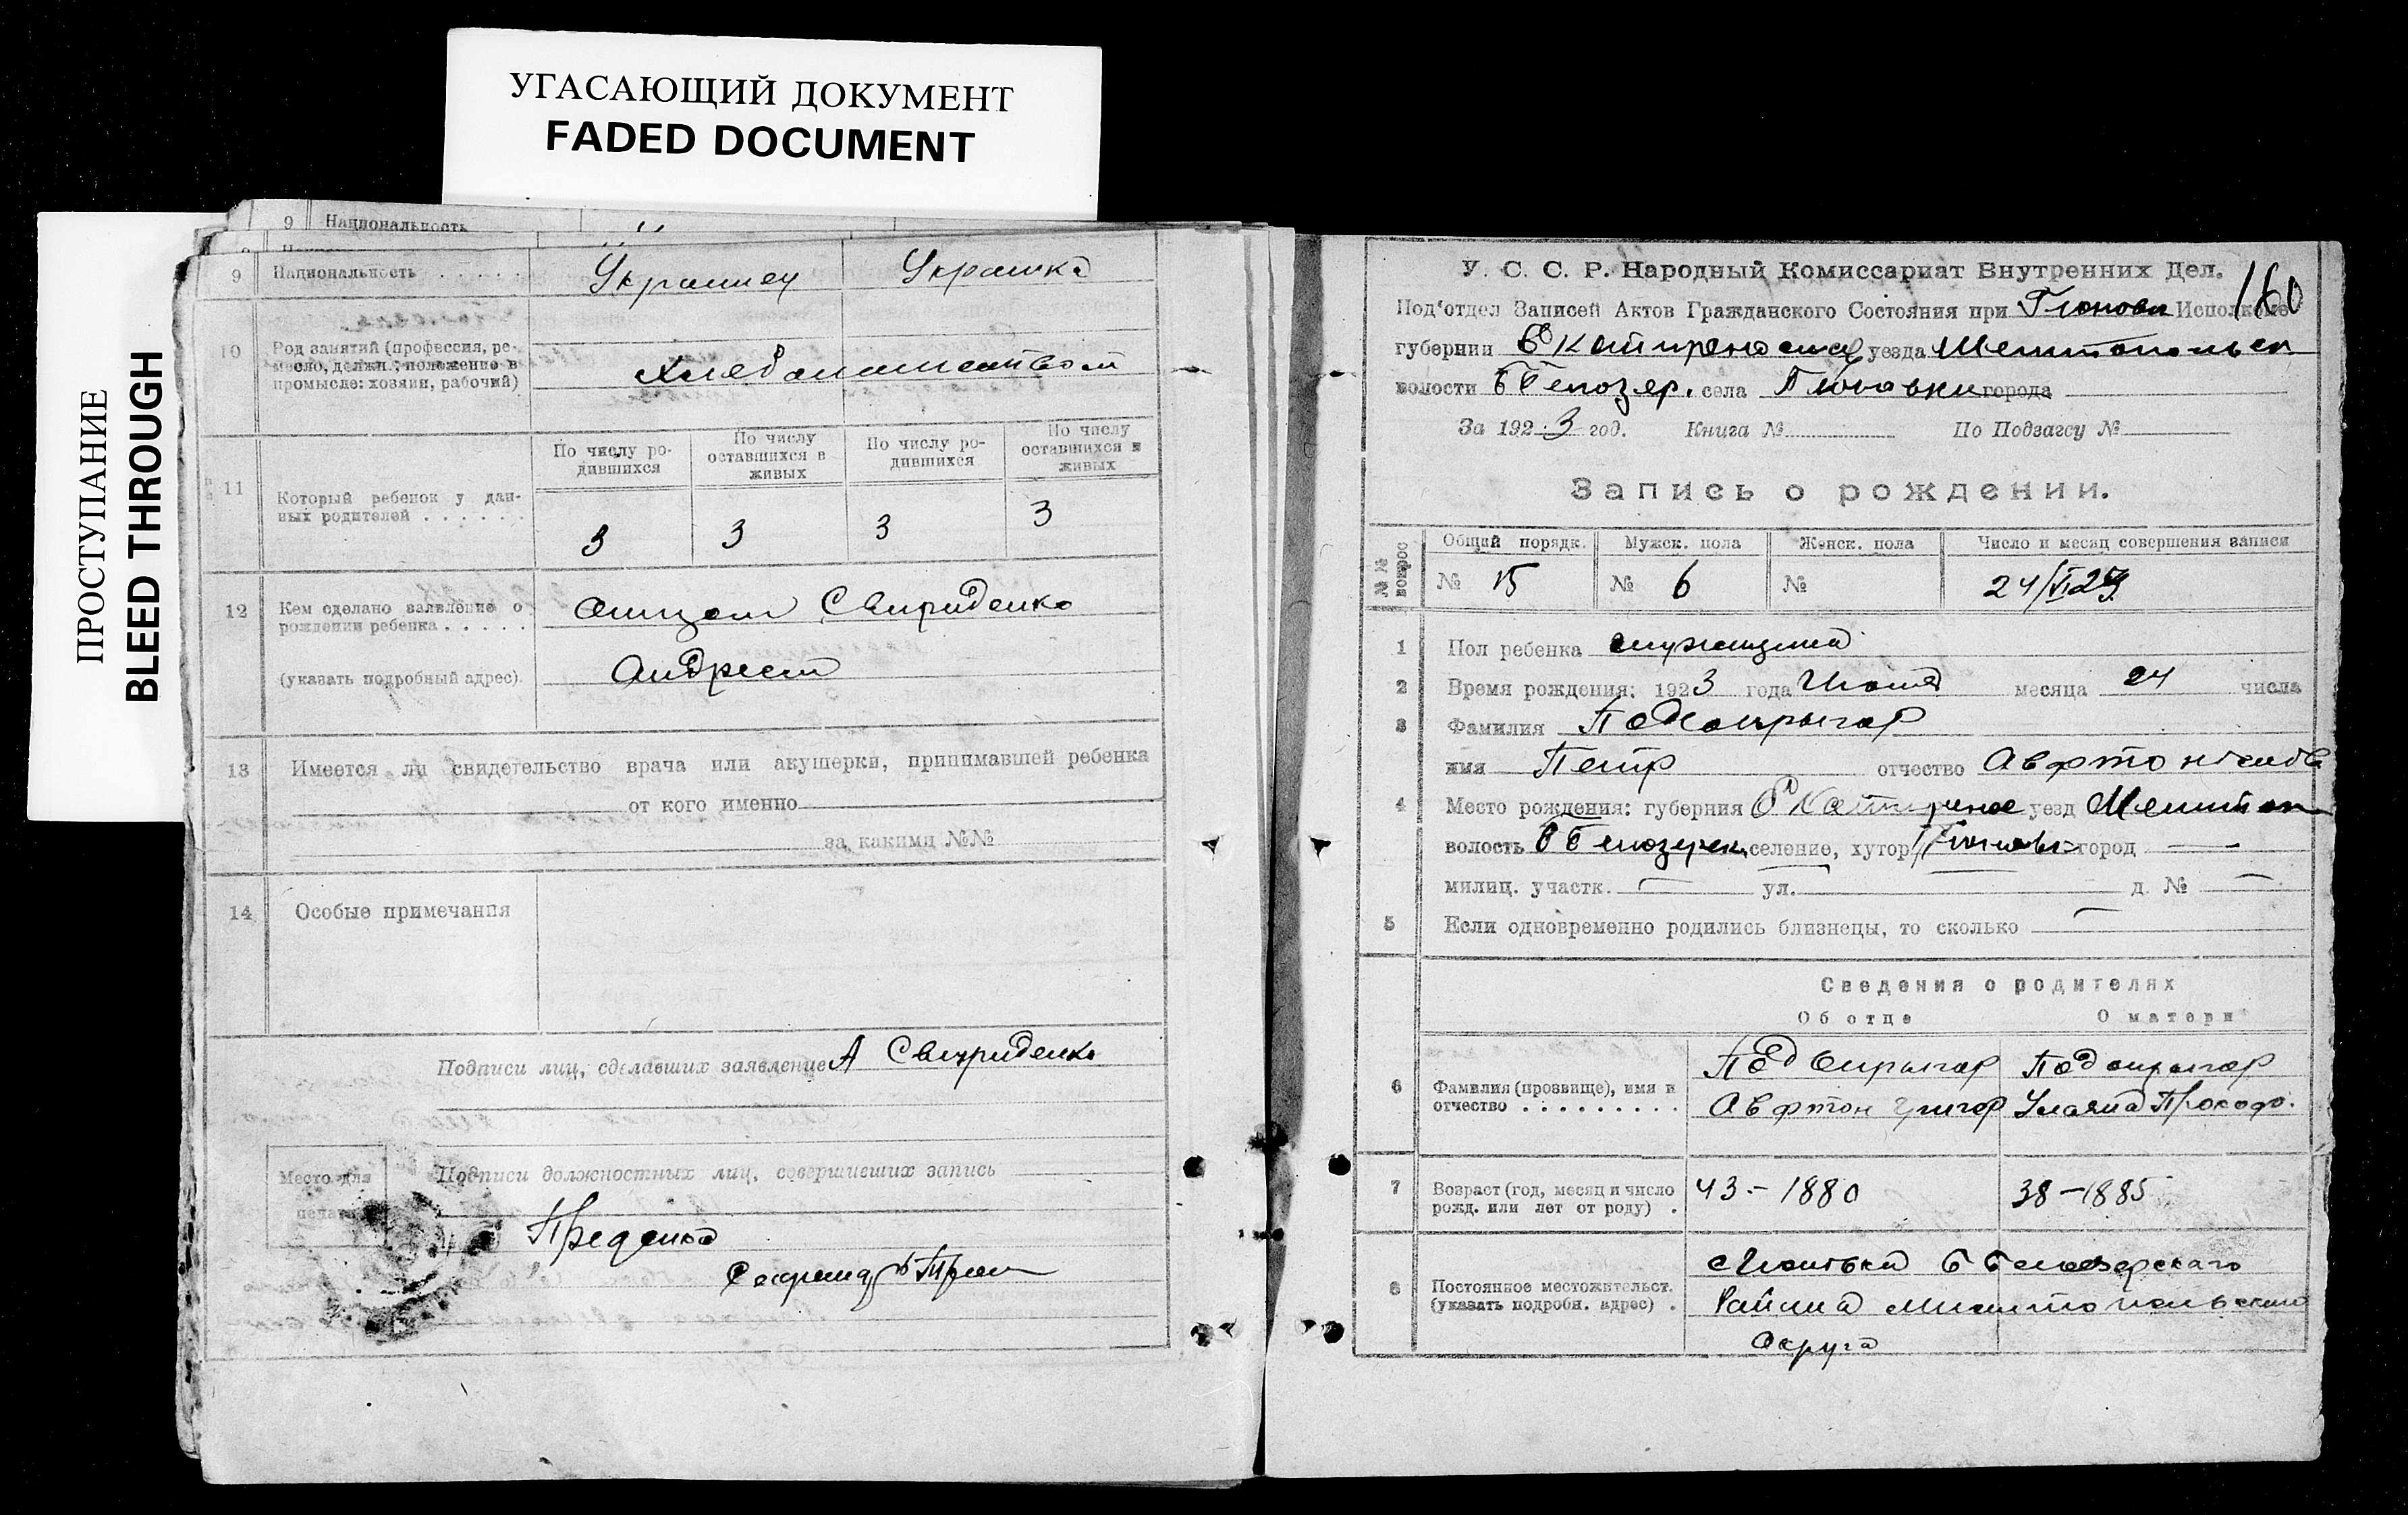 УГАСАЮЩИЙ ДОКУМЕНТ
FADED DOCUMENT
ПРОСТУПАНИЕ
BLEED THROUGH
9 Национальность
9 Национальность Украинец Украинка
10 Род занятий (профессия, ре-
месло, должн.; положение в
промысле: хозяин, рабочий)
Хлебопашеством
11 Который ребенок у дан-
ных родителей
По числу ро-
дившихся
По числу
оставшихся в
живых
По числу ро-
дившихся
По числу
оставшихся в
живых
3 3 3 3
12 Кем сделано заявление о
рождении ребенка
(указать подробный адрес).
Отцом Свириденко
Андреем
13 Имеется ли свидетельство врача или акушерки, принимавшей ребенка
от кого именно
за какими №№
14 Особые примечания
Подписи лиц, сделавших заявление А Свириденко
Место для
печати
Подписи должностных лиц, совершивших запись
У. С. С. Р. Народный Комиссариат Внутренних Дел. 160
Под'отдел Записей Актов Гражданского Состояния при Исполкоме
губернии Екатеринослав уезда Мелитопольск
волости Б Белозер. села города
За 1923 год. Книга № По Подзагсу №
Запись о рождении.
№№ вопрос
Общий порядк. Мужск. пола Женск. пола Число и месяц совершения записи
№ 15 № 6 № 24/VI 23
1 Пол ребенка мужеский
2 Время рождения: 1923 года месяца 24 числа
3 Фамилия Подопрыгор
имя Петр отчество
4 Место рождения: губерния уезд Мелитоп
волость Б Белозерск селение, хутор город —
милиц. участк. — ул. — д. № —
5 Если одновременно родились близнецы, то сколько —
Сведения о родителях
Об отце О матери
6 Фамилия (прозвище), имя и
отчество
Подопрыгор Подопрыгор
Авфтон Григор Уляна Прокоф.
7 Возраст (год, месяц и число
рожд. или лет от роду) .
43 - 1880 38 - 1885
8 Постоянное местожительст.
(указать подробн. адрес) .
Б Белозерскаго
Района Мелитопольскаго
Округа